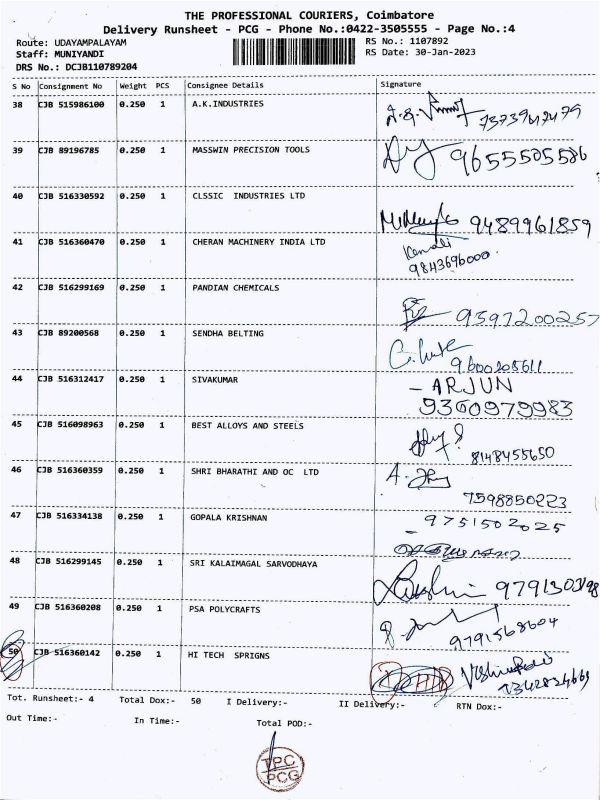 THE PROFESSIONAL COURIERS, Coimbatore
Delivery Runsheet - PCG - Phone No.:0422-3505555 - Page No.:4
Route: UDAYAMPALAYAM RS No.: 1107892
Staff: MUNIYANDI RS Date: 30-Jan-2023
DRS No.: DCJB110789204
S No Consignment No Weight PCS Consignee Details Signature
38 CJB 515986100 0.250 1 A.K.INDUSTRIES
39 CJB 89196785 0.250 1 MASSWIN PRECISION TOOLS 9655505586
40 CJB 516330592 0.250 1 CLSSIC INDUSTRIES LTD 9489961859
41 CJB 516360470 0.250 1 CHERAN MACHINERY INDIA LTD
9843696000
42 CJB 516299169 0.250 1 PANDIAN CHEMICALS 9597200257
43 CJB 89200568 0.250 1 SENDHA BELTING
9600205611
44 CJB 516312417 0.250 1 SIVAKUMAR - ARJUN
9360979983
45 CJB 516098963 0.250 1 BEST ALLOYS AND STEELS
8148455650
46 CJB 516360359 0.250 1 SHRI BHARATHI AND OC LTD
7598850223
47 CJB 516334138 0.250 1 GOPALA KRISHNAN - 9751502025
48 CJB 516299145 0.250 1 SRI KALAIMAGAL SARVODHAYA
49 CJB 516360208 0.250 1 PSA POLYCRAFTS
9791568604
50 CJB 516360142 0.250 1 HI TECH SPRIGNS
Tot. Runsheet:- 4 Total Dox:- 50 I Delivery:- II Delivery:- RTN Dox:-
Out Time:- In Time:- Total POD:-
TPC
PCG